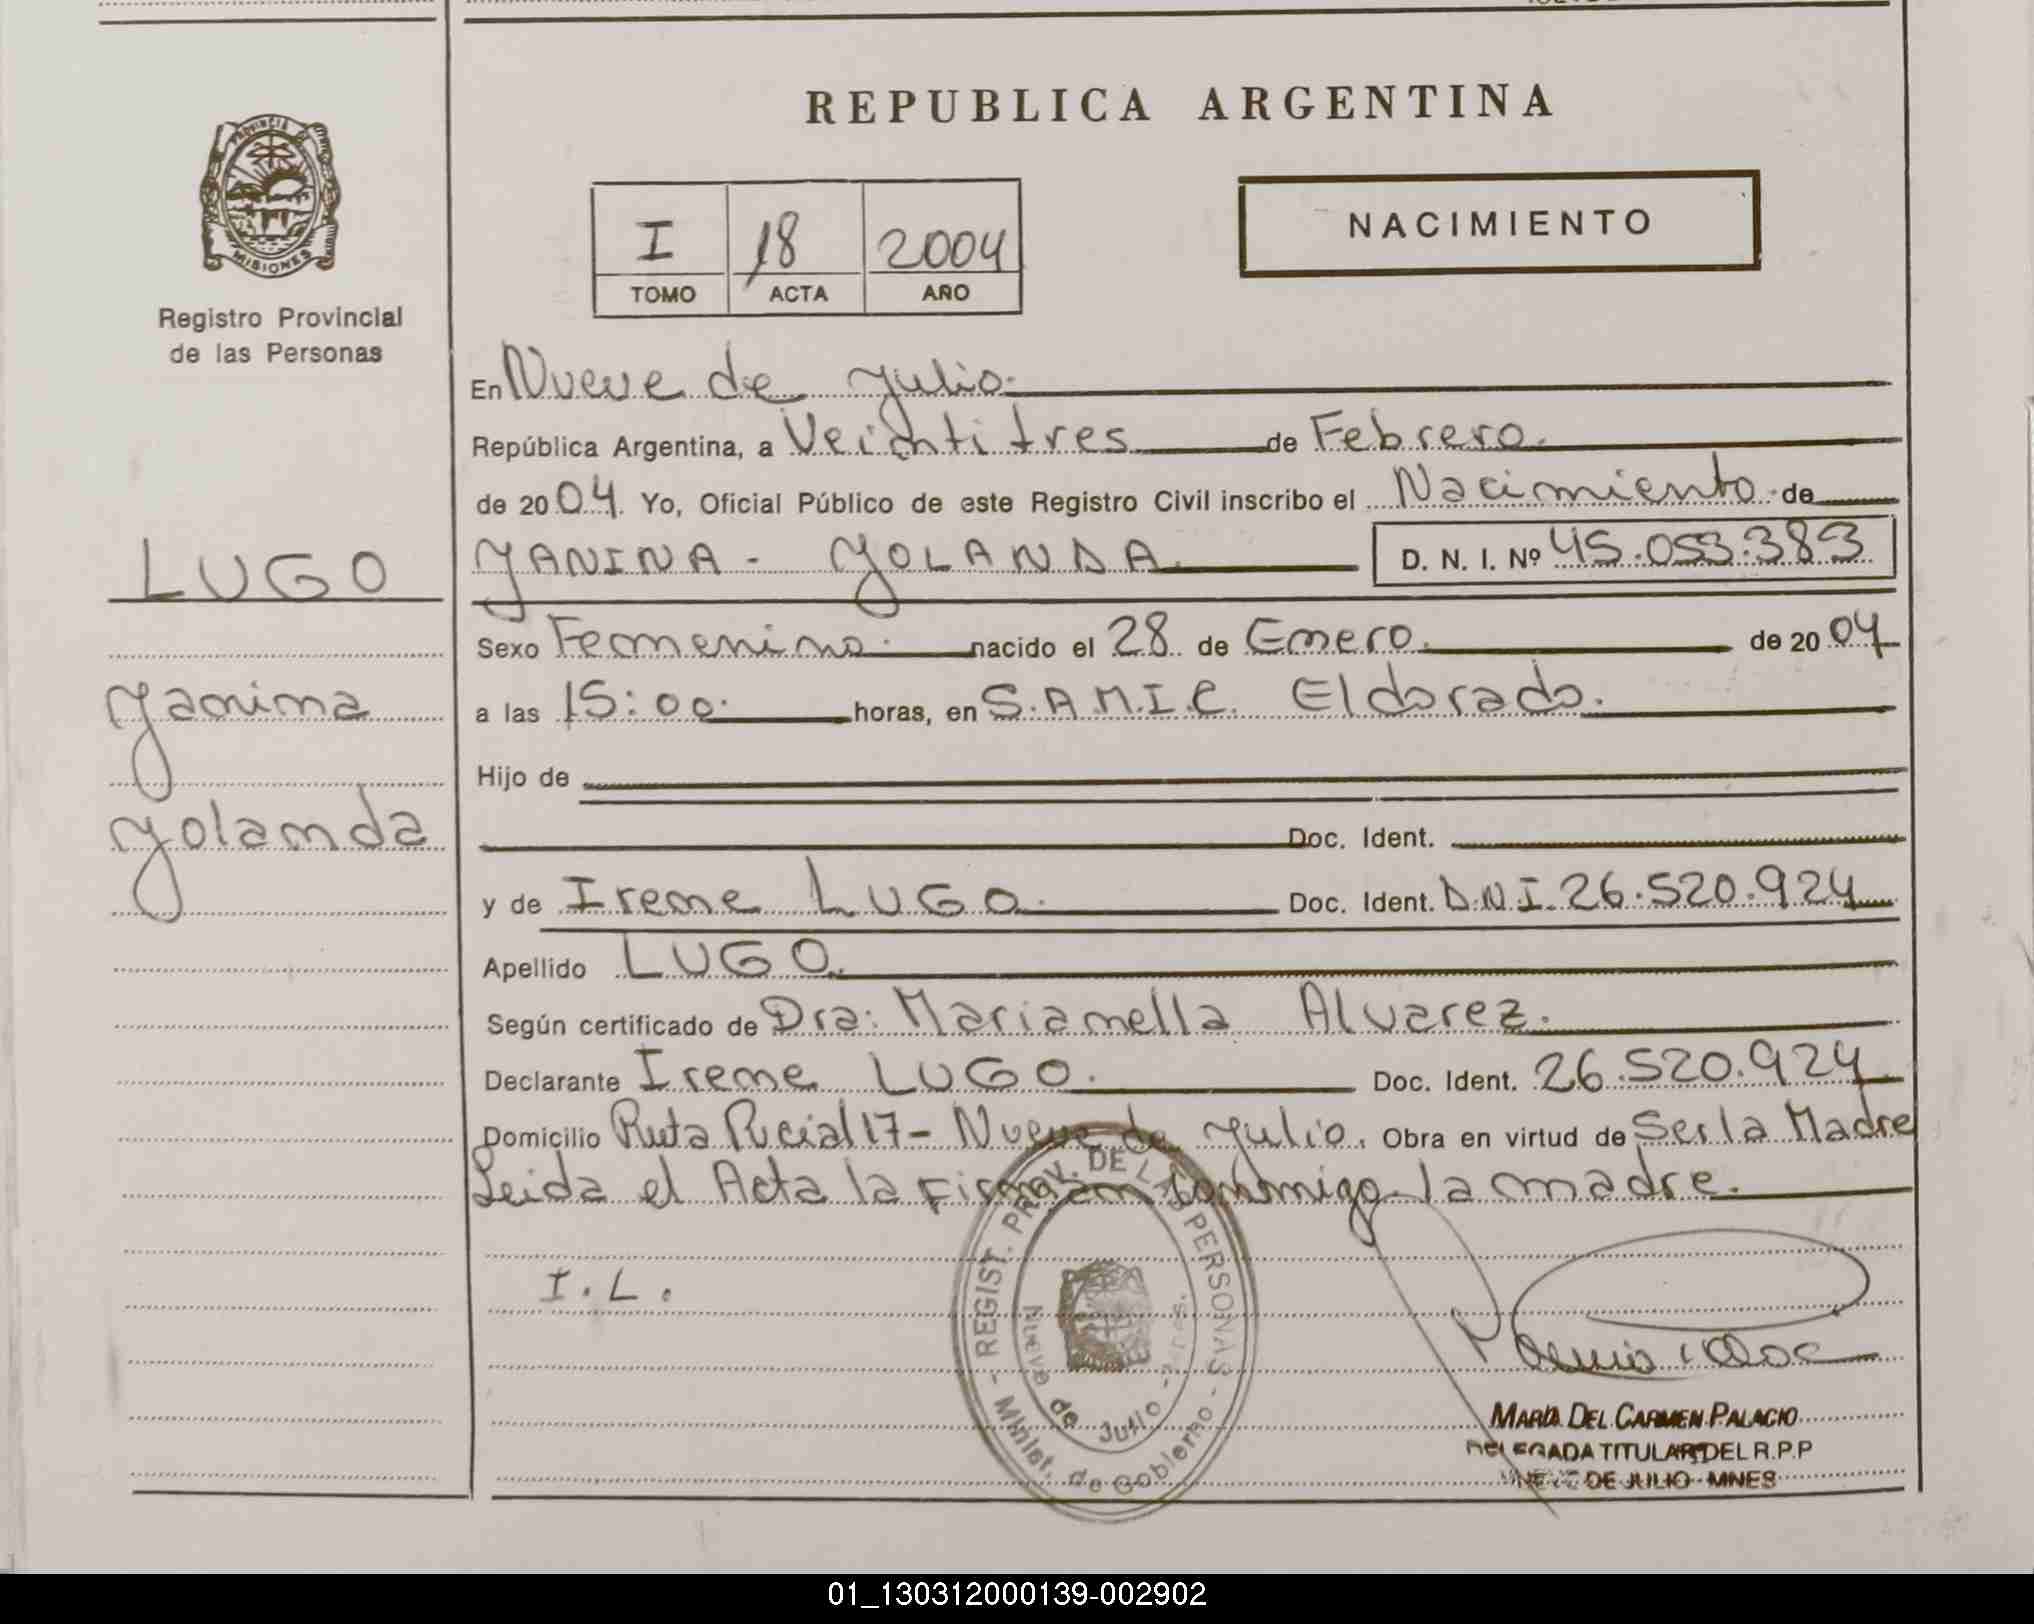 REPUBLICA ARGENTINA
PROVINCIA DE
MISIONES
Registro Provincial
de las Personas
I 18 2004
TOMO ACTA AÑO
NACIMIENTO
En Nueve de Julio.
República Argentina, a Veintitres de Febrero.
de 2004 Yo, Oficial Público de este Registro Civil inscribo el Nacimiento de
LUGO
YANINA - YOLANDA. D. N. I. Nº 45.053.383
Sexo Femenino. nacido el 28 de Enero. de 2004
Yanina
a las 15:00. horas, en S.A.M.I.C. Eldorado.
Hijo de
Yolanda
Doc. Ident.
y de Irene LUGO. Doc. Ident. D.N.I. 26.520.924
Apellido LUGO.
Según certificado de Dra: Marianella Alvarez.
Declarante Irene LUGO. Doc. Ident. 26.520.924
Domicilio Ruta Pucial 17 - Nueve de Julio. Obra en virtud de Ser la Madre
Leida el Acta la Firman conmigo la madre.
I.L.
REGIST. PROV. DE LAS PERSONAS - Minist. de Gobierno -
Nueve de Julio -
MARIA DEL CARMEN PALACIO
DELEGADA TITULAR DEL R.P.P
NUEVE DE JULIO - MNES
01_130312000139-002902